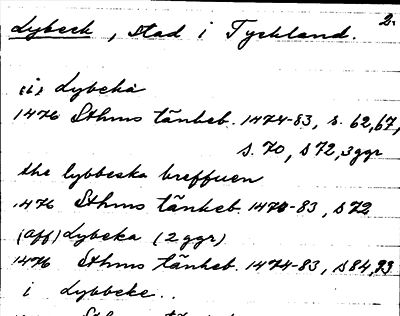 2.
Lybeck, stad i Tyskland.
(i) Lybeka
1476 Sthms tänkeb. 1474-83, s. 62, 67,
s. 70, s 72, 3 ggr
the lybbeska breffuen
1476 Sthms tänkeb. 1474-83, s 72
(aff) Lybeka (2 ggr)
1476 Sthms tänkeb. 1474-83, s 84, 93
i Lybbeke..